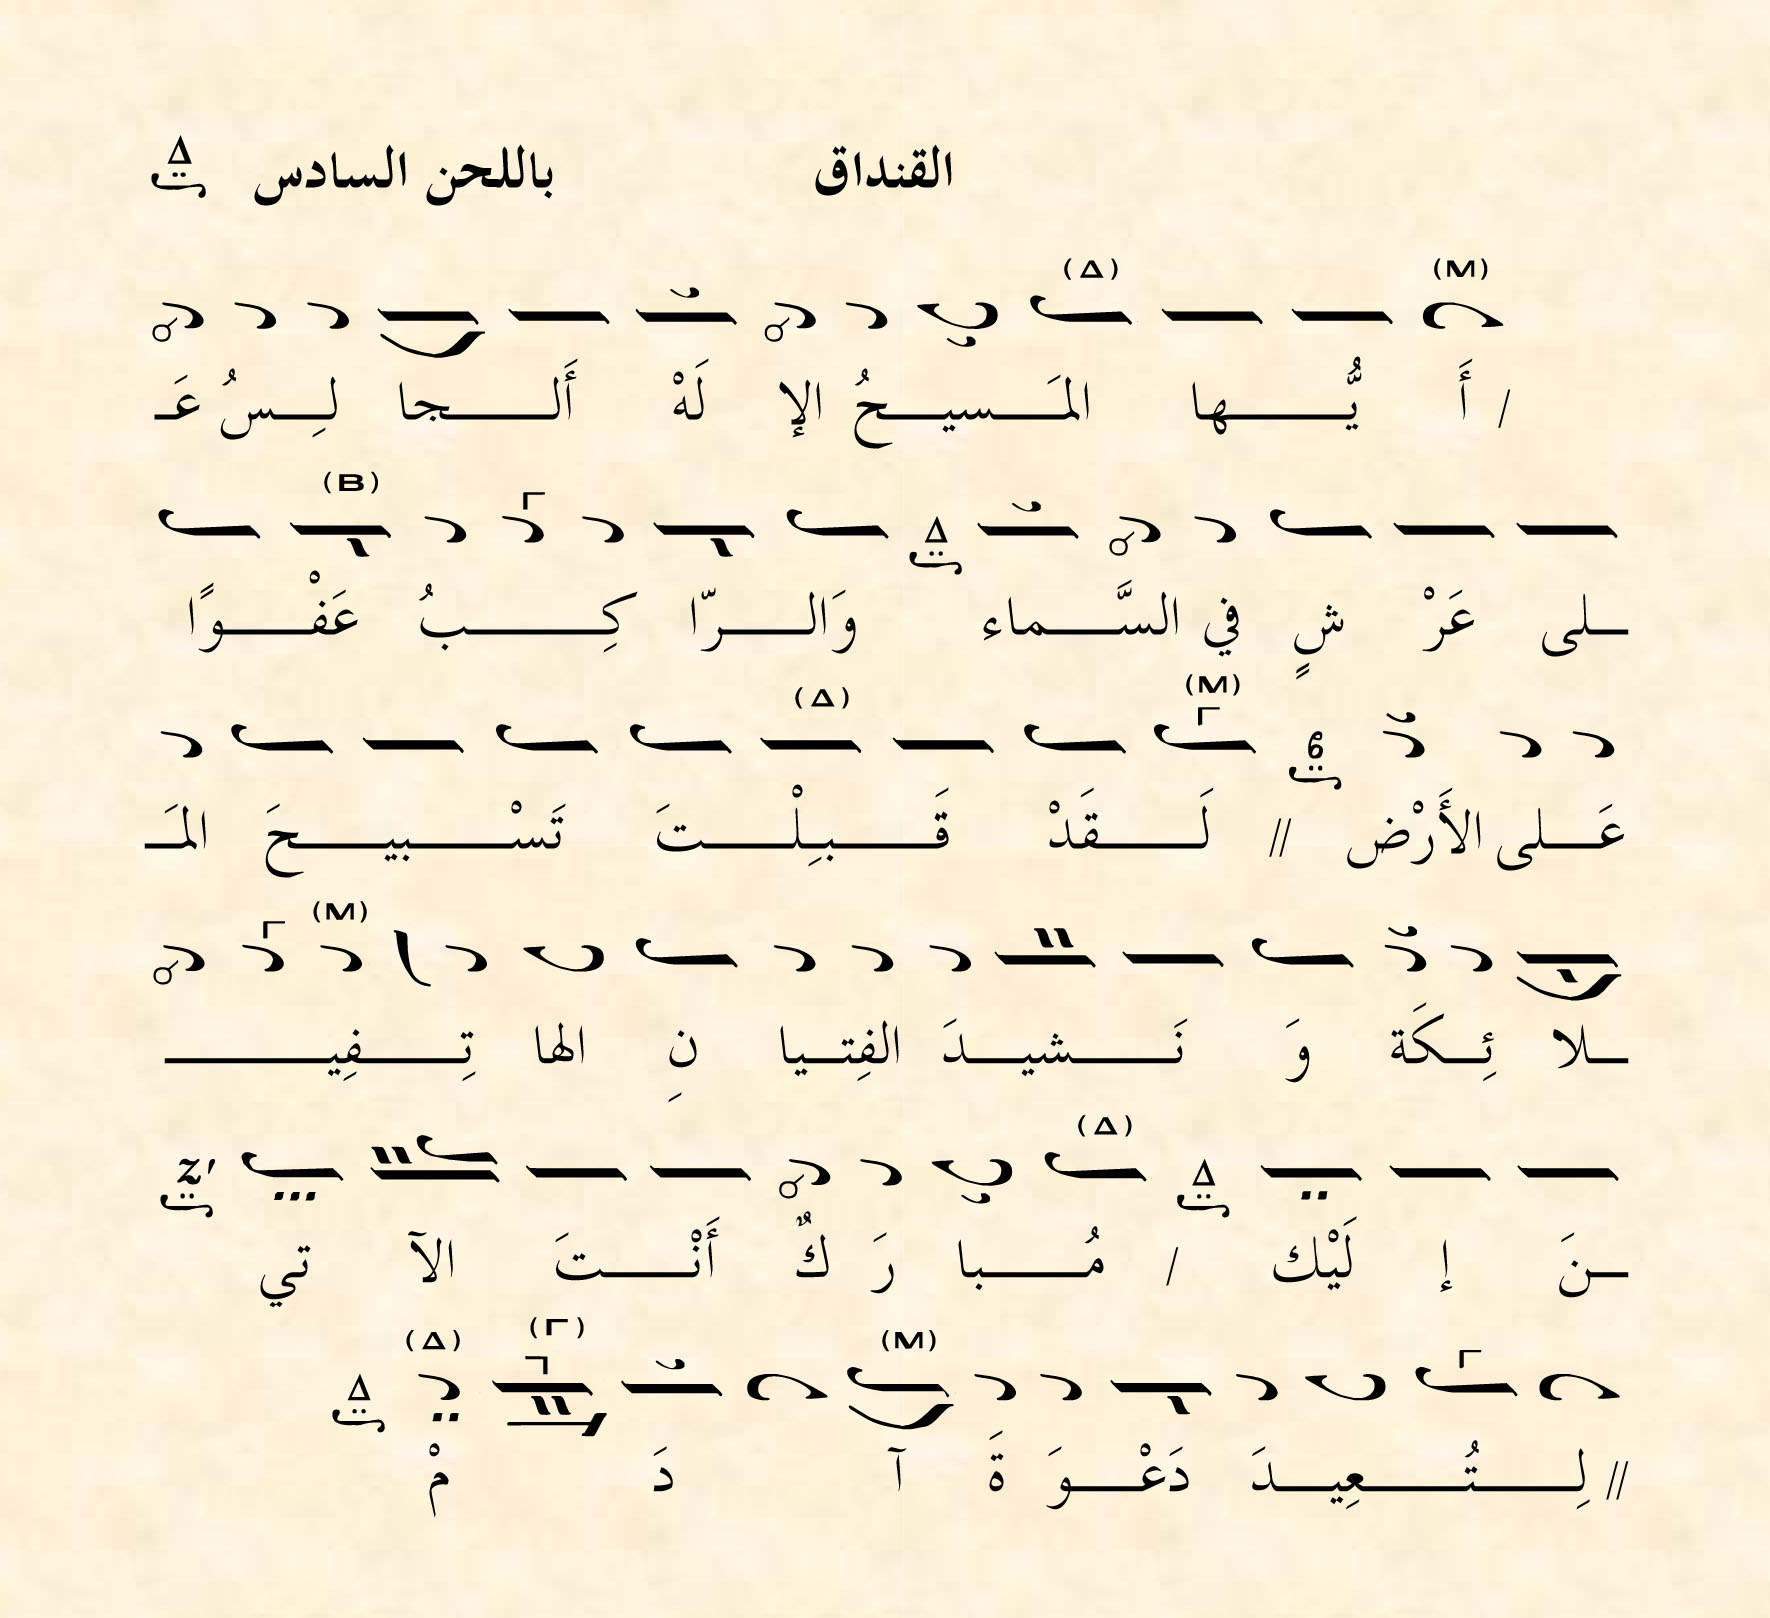 القنداق باللحن السادس Δ
(Μ) (Δ)
/ أَ يُّـــها المَـــسيـــحُ الإ لَهْ أَلـــجا لِـــسُ عَـ
(Β) Γ Δ
ـلى عَرْ شٍ في السَّـــماء وَالـــرّا كِـــبُ عَفْـــوًا
(Μ) Γ (Δ)
عَـــلى الأَرْض // لَـــقَدْ قَـــبِـلْـــتَ تَسْـــبيـــحَ المَـ
(Μ) Γ
ـلا ئِـــكَة وَ نَـــشيـــدَ الفِتـــيا نِ الها تِـــفِيـــ
Δ (Δ)
ـنَ إ لَيْك / مُـــبا رَ كٌ أَنْـــتَ الآ تي
Γ (Μ) (Γ) (Δ) Δ
// لِـــتُـــعِيـــدَ دَعْـــوَ ةَ آ دَ مْ